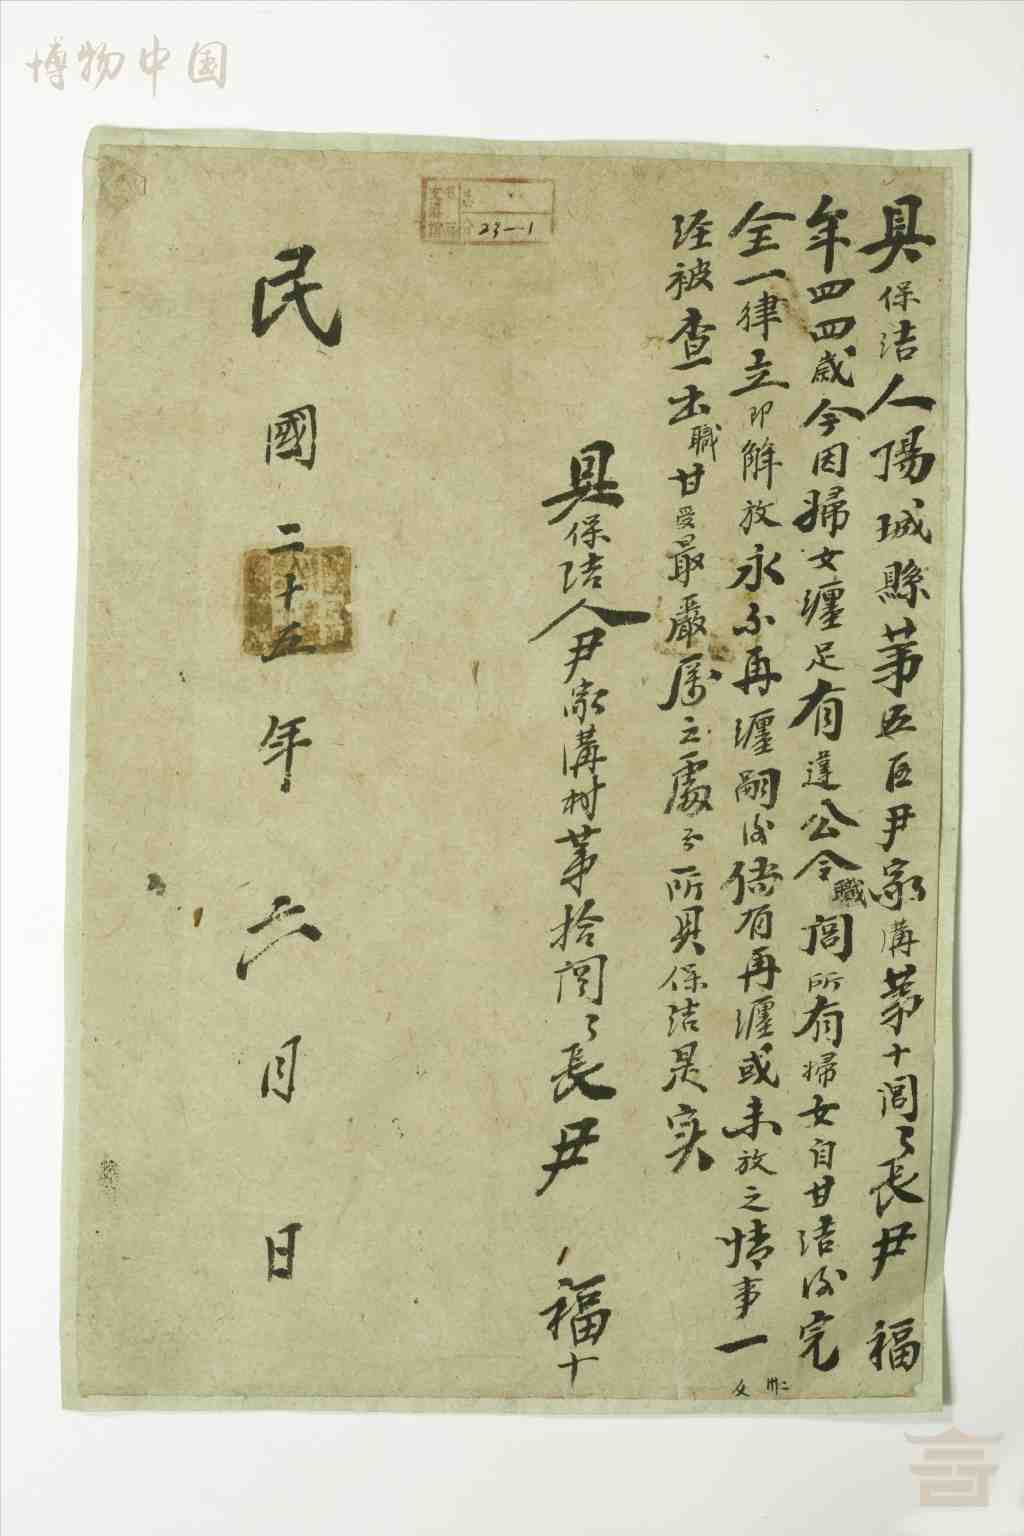 博物中国
23-1
具保结人陽城縣苐五区尹家溝苐十閭〻長尹福
年四四歲今因婦女纏足有違公令職閭所有婦女自甘结後完
全一律立即解放永不再纏嗣後倘有再纏或未放之情事一
经被查出職甘受最嚴厲之處分所具保结是实
具保结人尹家溝村苐拾閭〻長尹福十
民國二十五年六月日